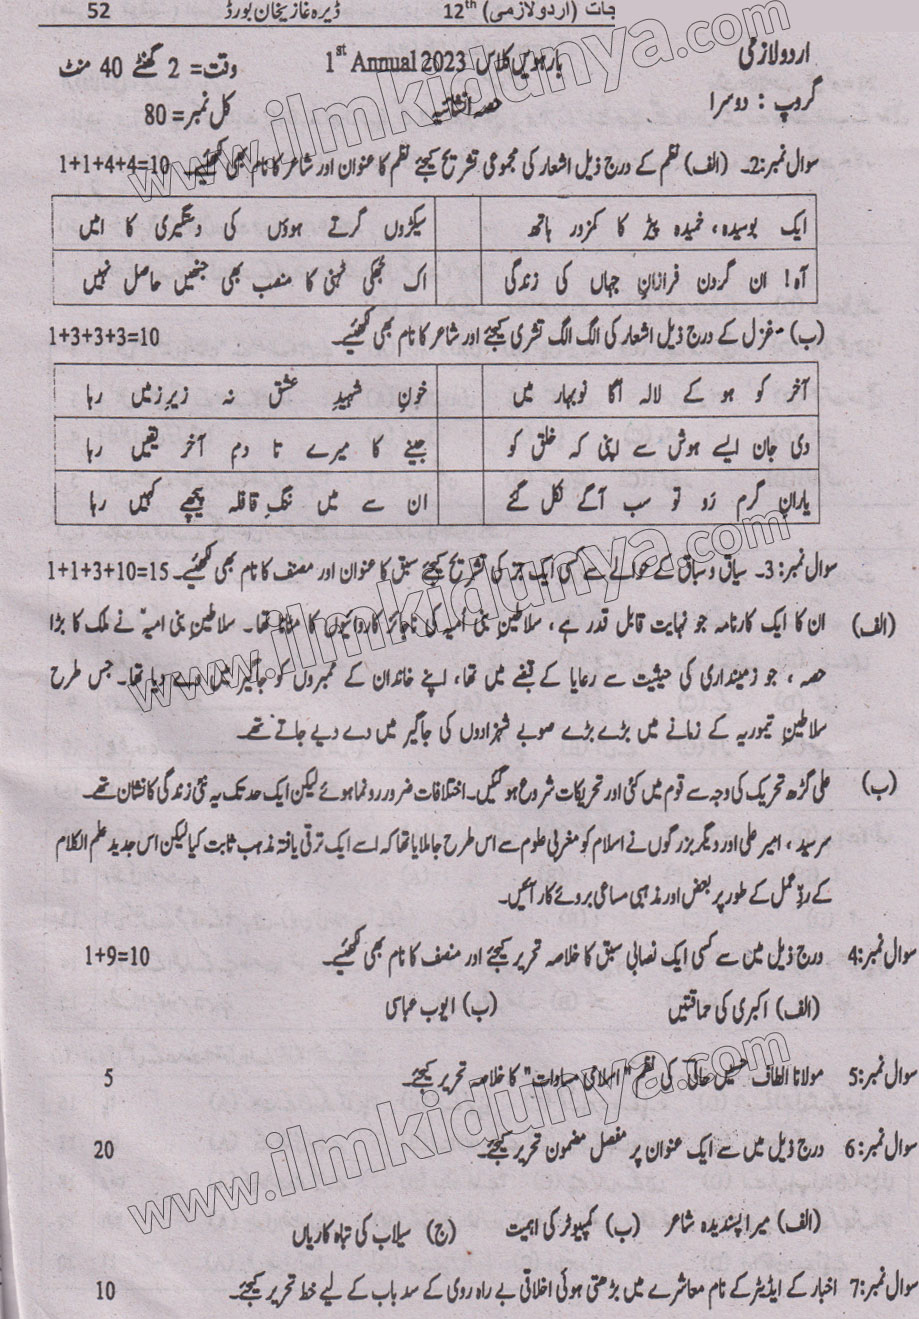 جات (اردو لازمی) 12th ڈیرہ غازیخان بورڈ 52
اردو لازمی بارہویں کلاس 1st Annual 2023 وقت= 2 گھنٹے 40 منٹ
گروپ : دوسرا حصہ انشائیہ کل نمبر= 80
سوال نمبر:2۔ (الف) نظم کے درج ذیل اشعار کی مجموعی تشریح کیجئے نظم کا عنوان اور شاعر کا نام بھی لکھئیے۔ 1+1+4+4=10
ایک بوسیدہ، خمیدہ پیڑ کا کمزور ہاتھ سیکڑوں گرتے ہوؤں کی دستگیری کا امیں
آہ! ان گردن فرازانِ جہاں کی زندگی اک جھکی ٹہنی کا منصب بھی جنھیں حاصل نہیں
(ب) غزل کے درج ذیل اشعار کی الگ الگ تشری کیجئے اور شاعر کا نام بھی لکھئیے۔ 1+3+3+3=10
آخر کو ہو کے لالہ اُگا نوبہار میں خونِ شہیدِ عشق نہ زیرِ زمیں رہا
دی جان ایسے ہوش سے اپنی کہ خلق کو جینے کا میرے تا دمِ آخر یقیں رہا
یارانِ گرم رَو تو سب آگے نکل گئے ان سے میں ننگِ قافلہ پیچھے کہیں رہا
سوال نمبر: 3۔ سیاق و سباق کے حوالے سے کسی ایک جز کی تشریح کیجئے سبق کا عنوان اور مصنف کا نام بھی لکھئیے۔ 1+1+3+10=15
(الف) ان کا ایک کارنامہ جو نہایت قابل قدر ہے، سلاطینِ بنی اُمیہ کی ناجائز کاروائیوں کا مٹانا تھا۔ سلاطینِ بنی امیہ نے ملک کا بڑا
حصہ، جو زمینداری کی حیثیت سے رعایا کے قبضے میں تھا، اپنے خاندان کے ممبروں کو جاگیر میں دے دیا تھا۔ جس طرح
سلاطینِ تیموریہ کے زمانے میں بڑے بڑے صوبے شہزادوں کی جاگیر میں دے دیے جاتے تھے۔
(ب) علی گڑھ تحریک کی وجہ سے قوم میں کئی اور تحریکات شروع ہو گئیں۔ اختلافات ضرور رونما ہوئے لیکن ایک حد تک یہ نئی زندگی کا نشان تھے۔
سرسید، امیر علی اور دیگر بزرگوں نے اسلام کو مغربی علوم سے اس طرح جا ملایا تھا کہ اسے ایک ترقی یافتہ مذہب ثابت کیا لیکن اس جدید علم الکلام
کے ردِّعمل کے طور پر بعض اور مذہبی مساعی بروئے کار آئیں۔
سوال نمبر:4 درج ذیل میں سے کسی ایک نصابی سبق کا خلاصہ تحریر کیجئے اور منصف کا نام بھی لکھئیے۔ 1+9=10
(الف) اکبری کی حماقتیں (ب) ایوب عباسی
سوال نمبر:5 مولانا الطاف حسین حالیؔ کی نظم "اسلامی مساوات" کا خلاصہ تحریر کیجئے۔ 5
سوال نمبر:6 درج ذیل میں سے ایک عنوان پر مفصل مضمون تحریر کیجئے۔ 20
(الف) میرا پسندیدہ شاعر (ب) کمپیوٹر کی اہمیت (ج) سیلاب کی تباہ کاریاں
سوال نمبر:7 اخبار کے ایڈیٹر کے نام معاشرے میں بڑھتی ہوئی اخلاقی بے راہ روی کے سدِباب کے لیے خط تحریر کیجئے۔ 10
www.ilmkidunya.com
www.ilmkidunya.com
www.ilmkidunya.com